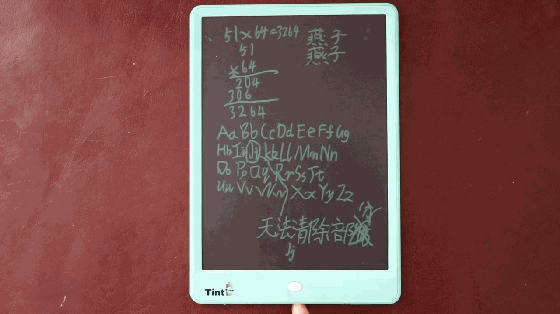 51×64=3264
燕子
51
燕子
×64
204
306
3264
Aa Bb Cc Dd Ee Ff Gg
Hh Ii Jj Kk Ll Mm Nn
Oo Pp Qq Rr Ss Tt
Uu Vv Ww Xx Yy Zz
无法清除部分
Tint